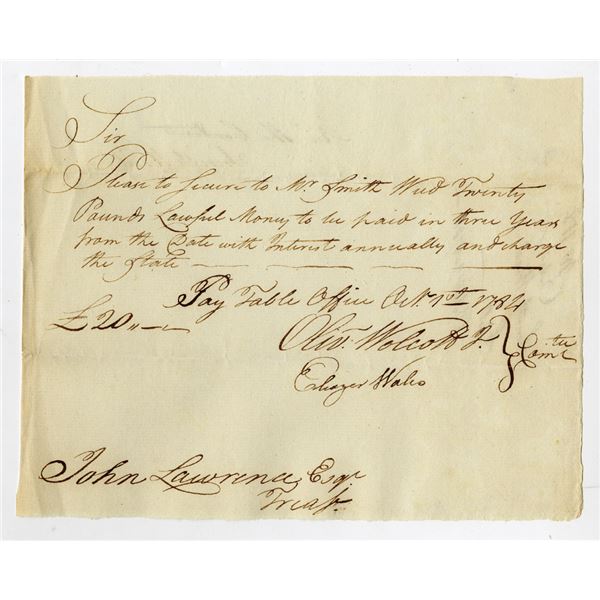 Sir
Please to Secure to Mr Smith Weed Twenty
Pounds Lawful Money to be paid in three Years
from the Date with Interest annually and charge
the State
Pay Table Office Octr 1st 1784
£20,,—,,—
Olivr Wolcott Jr
Eliazer Wales
Comtee
John Lawrence Esqr
Treasr